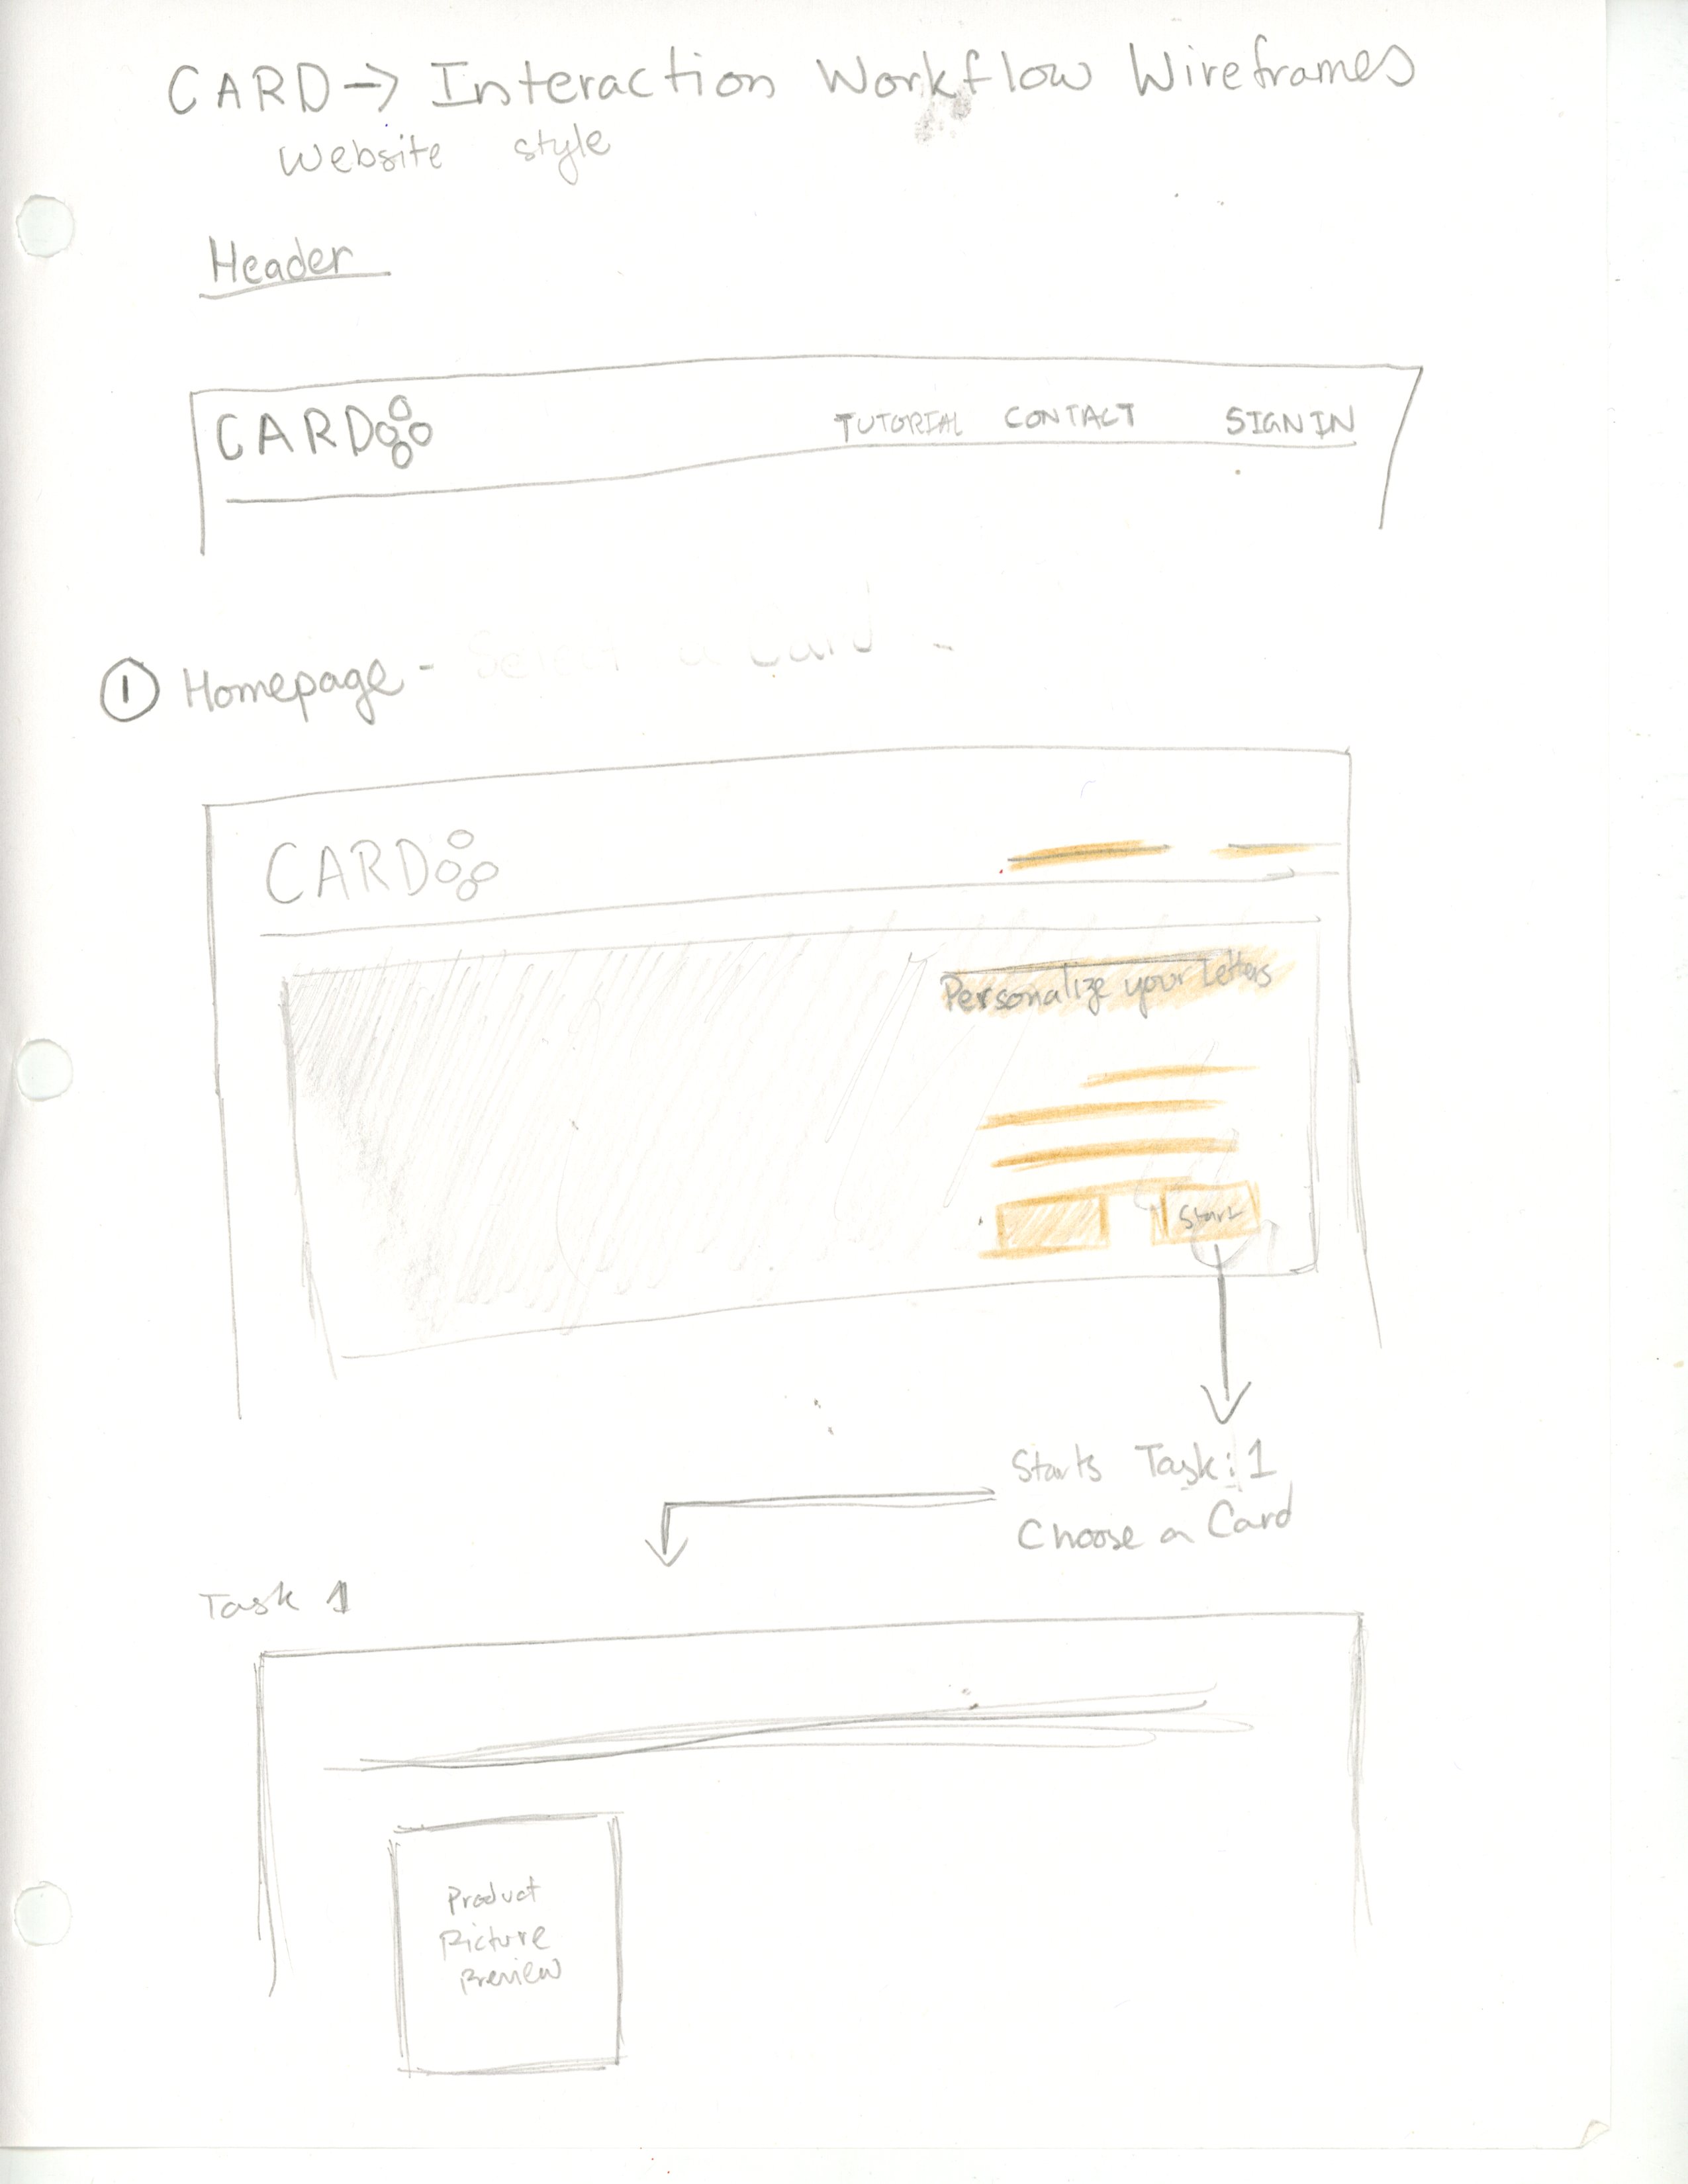 CARD → Interaction Workflow Wireframes
Website style
Header
CARD
TUTORIAL CONTACT SIGN IN
① Homepage - Select a Card
CARD
Personalize your letters
Start
Starts Task: 1
Choose a Card
Task 1
Product
Picture
Preview